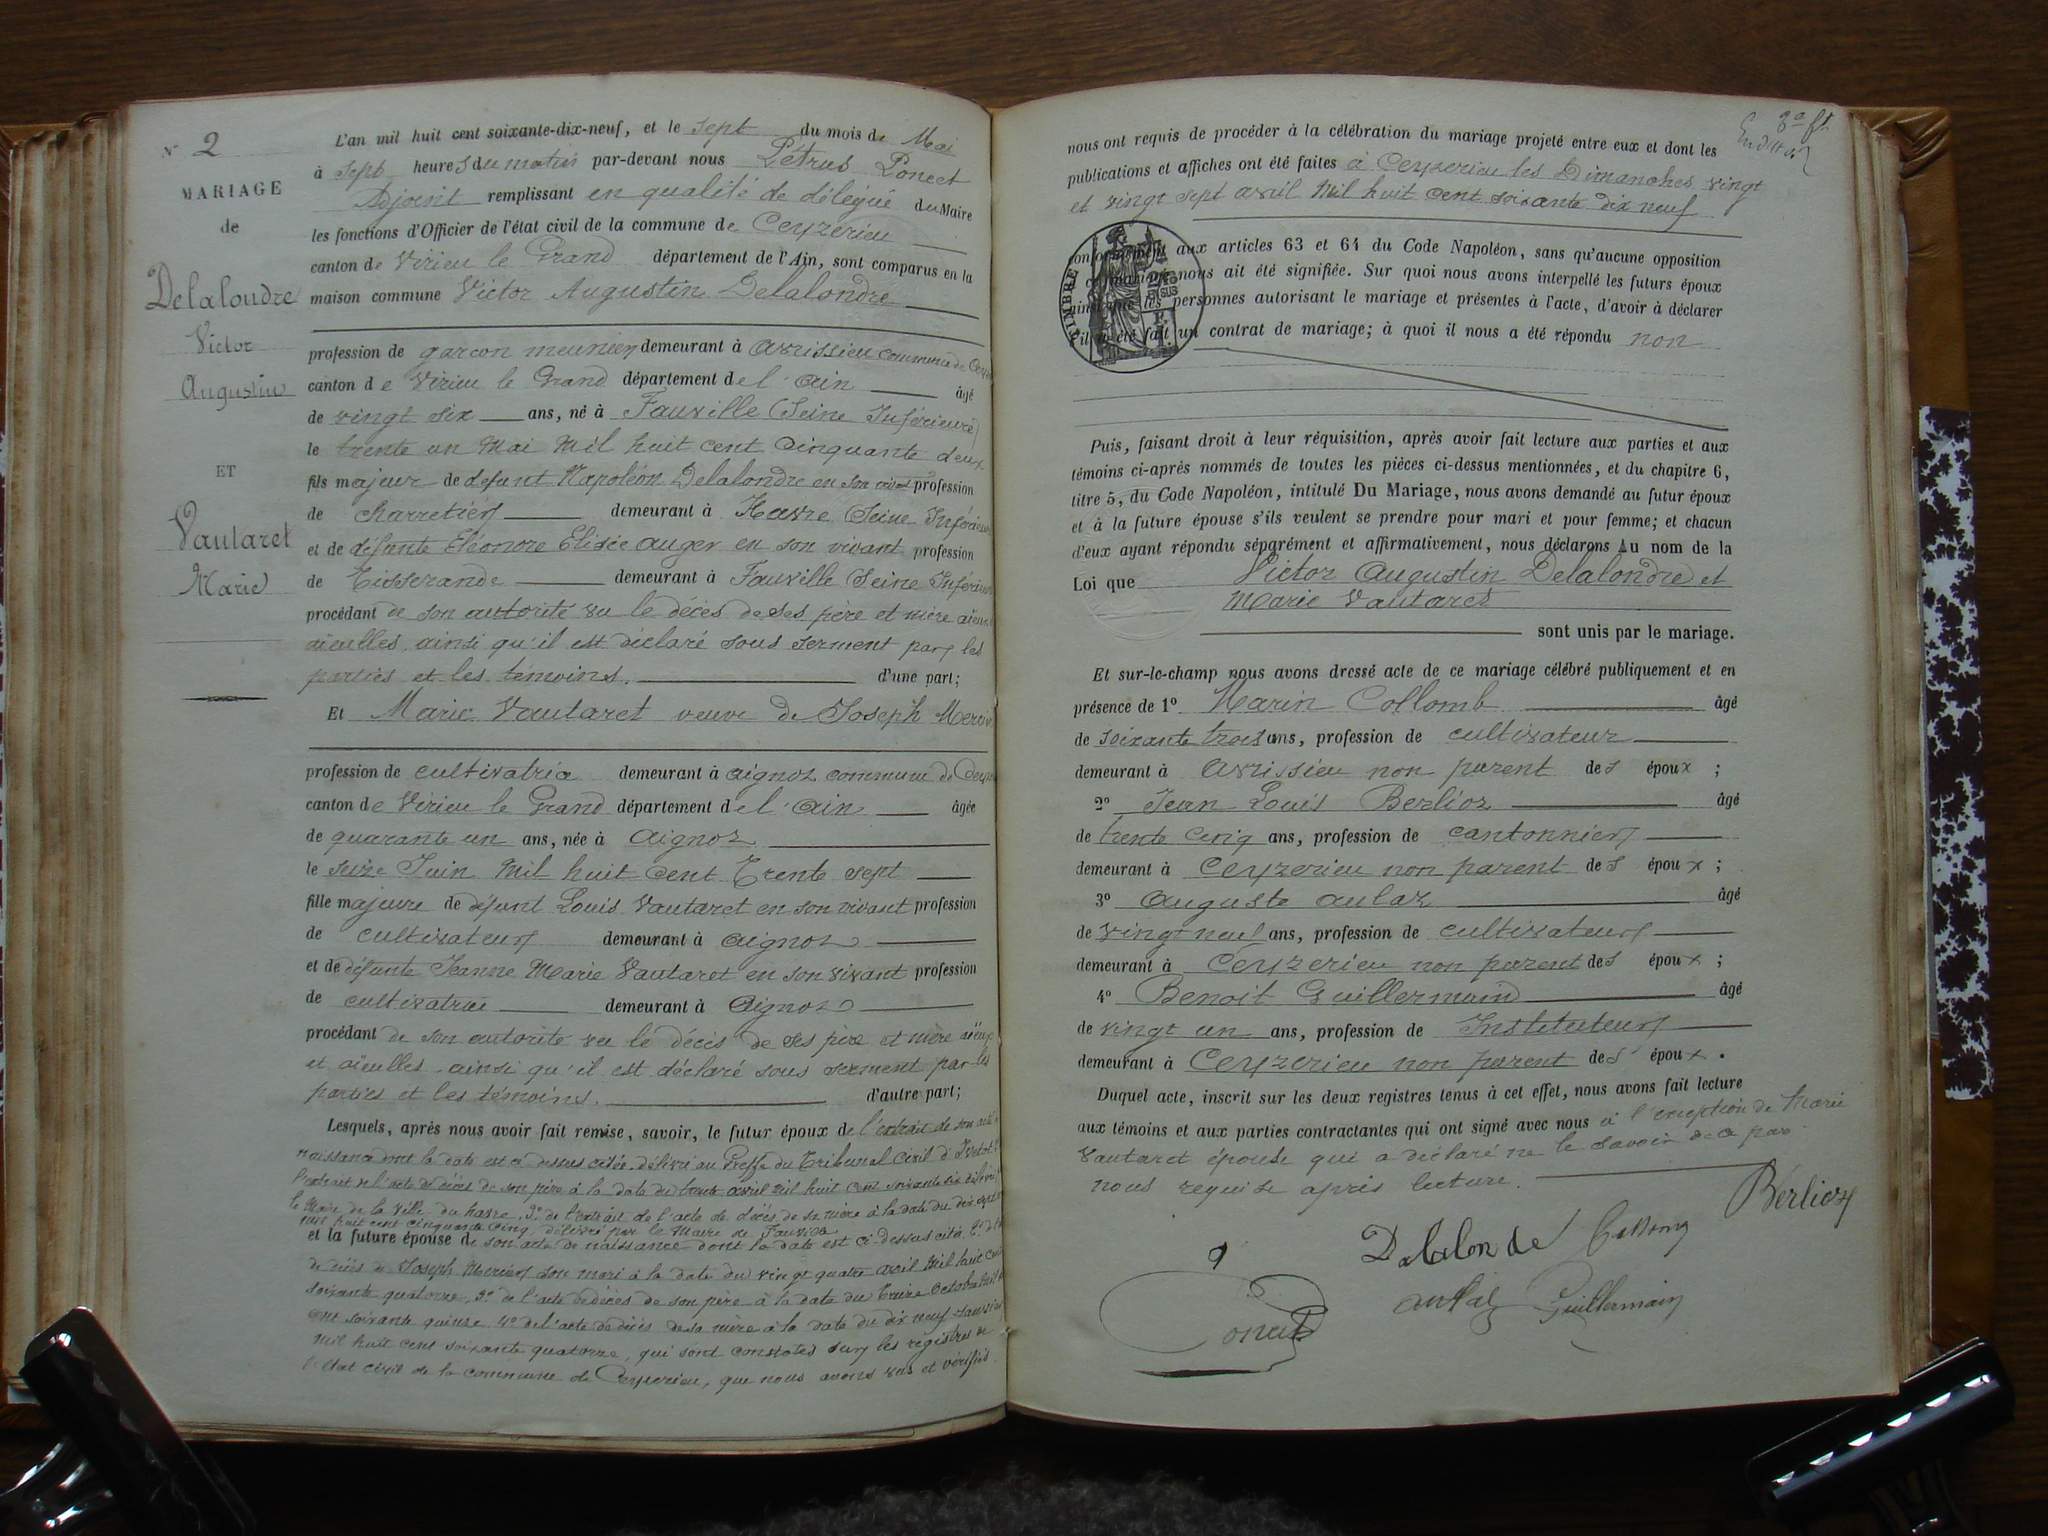 N° 2
MARIAGE
de
Delalondre
Victor
Augustin
ET
Vautaret
Marie
L'an mil huit cent soixante-dix-neuf, et le sept du mois de Mai
à sept heures du matin par-devant nous Pétrus Poncet
Adjoint remplissant en qualité de délégué du Maire
les fonctions d'Officier de l'état civil de la commune de Ceyzerieu
canton de Virieu le Grand département de l'Ain, sont comparus en la
maison commune Victor Augustin Delalondre
profession de garçon meunier demeurant à Avrissieu commune de
canton de Virieu le Grand département de l'Ain âgé
de vingt six ans, né à Fauville (Seine Inférieure)
le trente un Mai Mil huit cent Cinquante deux
fils majeur de défunt Napoléon Delalondre en son vivant profession
de Charretier demeurant à Havre (Seine Inférieure
et de défunte Eléonore Elisée Auger en son vivant profession
de Tisserande demeurant à Fauville (Seine Inférieure
procédant de son autorité vu le décès de ses père et mère aïeux
aïeulles ainsi qu'il est déclaré sous serment par les
parties et les témoins. d'une part;
Et Marie Vautaret veuve de Joseph
profession de cultivatrice demeurant à Aignoz commune de
canton de Virieu le Grand département de l'Ain âgée
de quarante un ans, née à Aignoz
le seize Juin Mil huit Cent Trente sept
fille majeure de défunt Louis Vautaret en son vivant profession
de cultivateur demeurant à Aignoz
et de défunte Jeanne Marie Vautaret en son vivant profession
de cultivatrice demeurant à Aignoz
procédant de son autorité vu le décès de ses père et mère aïeux
et aïeulles ainsi qu'il est déclaré sous serment par les
parties et les témoins. d'autre part;
Lesquels, après nous avoir fait remise, savoir, le futur époux de l'extrait de son acte
naissance dont la date est ci dessus citée délivré au Greffe du Tribunal Civil d'Ivetot
l'extrait de l'acte de décès de son père à la date du trente avril mil huit cent soixante six délivré
le Maire de la ville du havre, 3° de l'extrait de l'acte de décès de sa mère à la date du dix
mil huit cent cinquante cinq délivré par le Maire de Fauville
et la future épouse de son acte de naissance dont la date est ci-dessus cité, 2°
de décès de Joseph son mari à la date du vingt quatre avril Mil huit cent
soixante quatorze, 3° de l'acte de décès de son père à la date du treize Octobre mil
cent soixante quinze 4° de l'acte de décès de sa mère à la date du dix neuf Janvier
mil huit cent soixante quatorze, qui sont constatés sur les registres de
l'état civil de la commune de Ceyzerieu, que nous avons vus et vérifiés.
nous ont requis de procéder à la célébration du mariage projeté entre eux et dont les
publications et affiches ont été faites à Ceyzerieu les Dimanches vingt
et vingt sept avril Mil huit cent soixante dix neuf
TIMBRE
conformément aux articles 63 et 64 du Code Napoléon, sans qu'aucune opposition
mariage nous ait été signifiée. Sur quoi nous avons interpellé les futurs époux
ainsi que les personnes autorisant le mariage et présentes à l'acte, d'avoir à déclarer
s'il a été fait un contrat de mariage; à quoi il nous a été répondu non
Puis, faisant droit à leur réquisition, après avoir fait lecture aux parties et aux
témoins ci-après nommés de toutes les pièces ci-dessus mentionnées, et du chapitre 6,
titre 5, du Code Napoléon, intitulé Du Mariage, nous avons demandé au futur époux
et à la future épouse s'ils veulent se prendre pour mari et pour femme; et chacun
d'eux ayant répondu séparément et affirmativement, nous déclarons Au nom de la
Loi que Victor Augustin Delalondre et
Marie Vautaret
sont unis par le mariage.
Et sur-le-champ nous avons dressé acte de ce mariage célébré publiquement et en
présence de 1° Marin Collomb âgé
de soixante trois ans, profession de cultivateur
demeurant à Avrissieu non parent des époux ;
2° Jean Louis Berlioz âgé
de trente cinq ans, profession de cantonnier
demeurant à Ceyzerieu non parent des époux ;
3° Auguste Aulaz âgé
de vingt neuf ans, profession de cultivateur
demeurant à Ceyzerieu non parent des époux ;
4° Benoit Guillermain âgé
de vingt un ans, profession de Instituteur
demeurant à Ceyzerieu non parent des époux .
Duquel acte, inscrit sur les deux registres tenus à cet effet, nous avons fait lecture
aux témoins et aux parties contractantes qui ont signé avec nous à l'exception de Marie
Vautaret épouse qui a déclaré ne le savoir de ce par
nous requise après lecture.
Berlioz
Delalonde Collomb
Aulaz Guillermain
Poncet